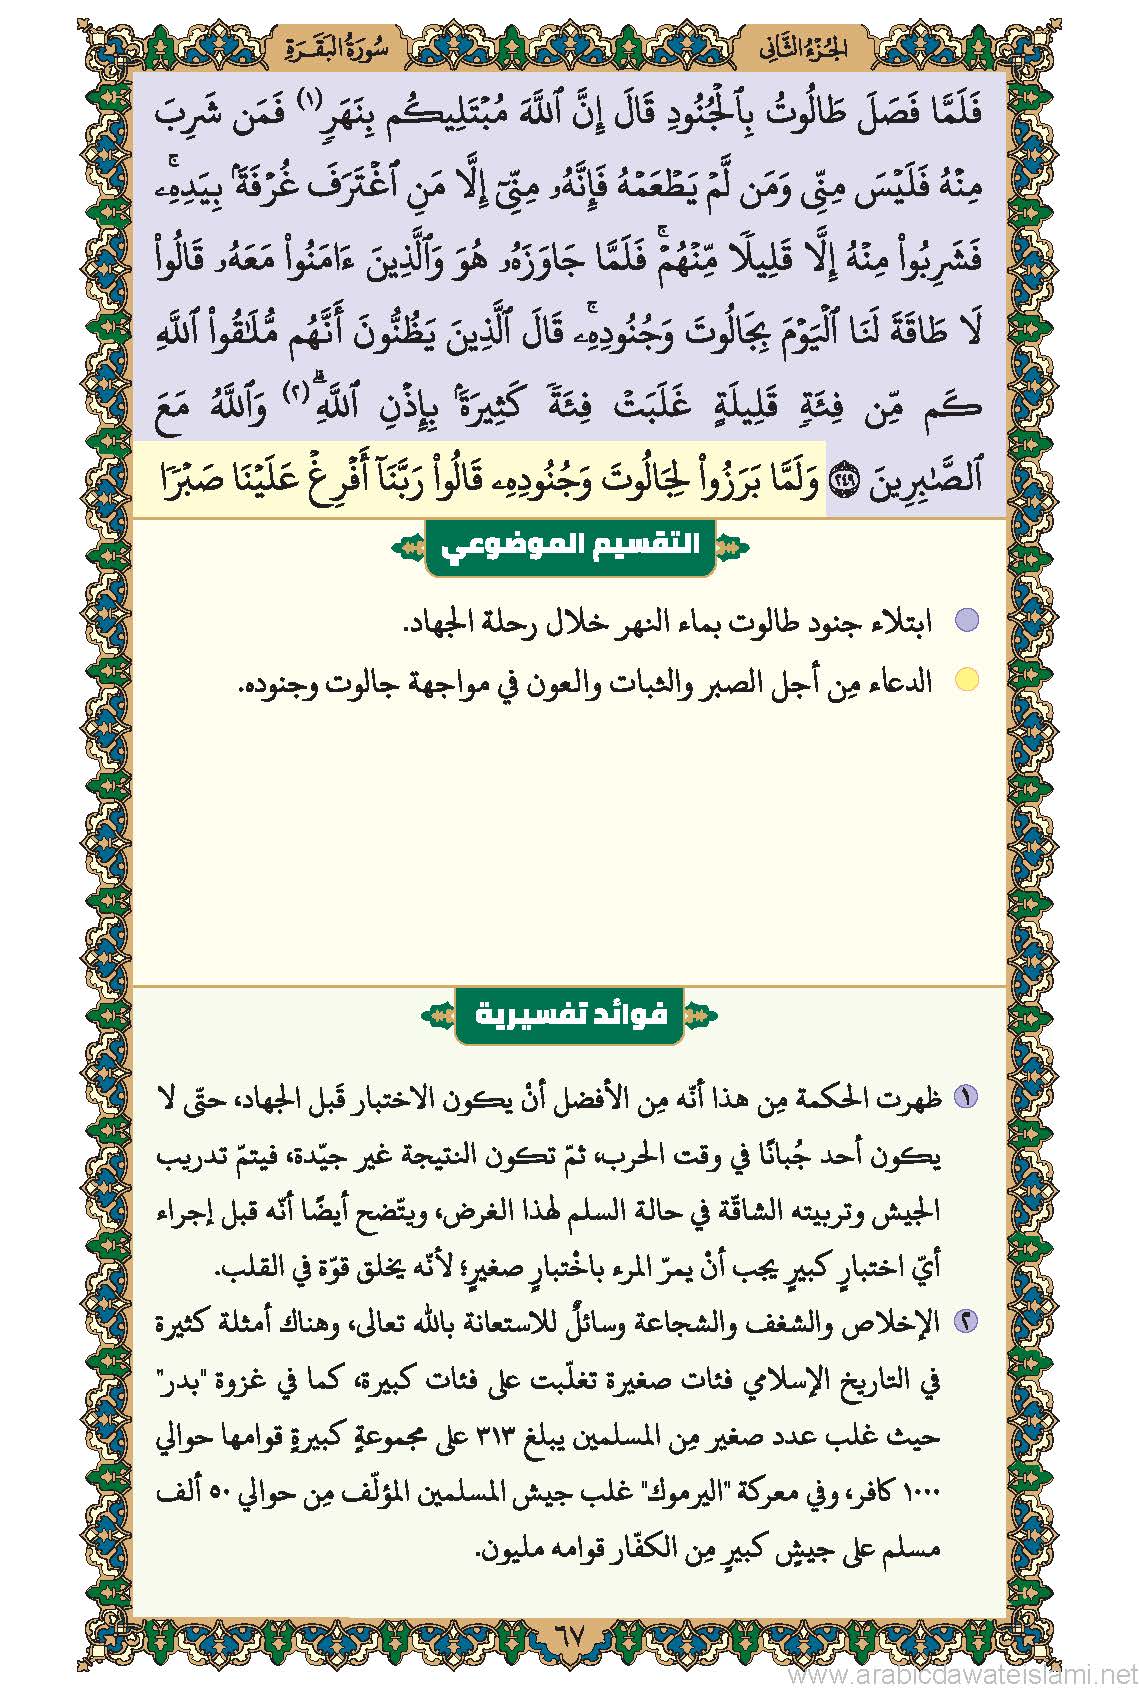 الجُزْءُ الثَّانِي
سُورَةُ البَقَرَةِ
فَلَمَّا فَصَلَ طَالُوتُ بِٱلۡجُنُودِ قَالَ إِنَّ ٱللَّهَ مُبۡتَلِيكُم بِنَهَرٖ (١) فَمَن شَرِبَ
مِنۡهُ فَلَيۡسَ مِنِّي وَمَن لَّمۡ يَطۡعَمۡهُ فَإِنَّهُۥ مِنِّيٓ إِلَّا مَنِ ٱغۡتَرَفَ غُرۡفَةَۢ بِيَدِهِۦۚ
فَشَرِبُواْ مِنۡهُ إِلَّا قَلِيلٗا مِّنۡهُمۡۚ فَلَمَّا جَاوَزَهُۥ هُوَ وَٱلَّذِينَ ءَامَنُواْ مَعَهُۥ قَالُواْ
لَا طَاقَةَ لَنَا ٱلۡيَوۡمَ بِجَالُوتَ وَجُنُودِهِۦۚ قَالَ ٱلَّذِينَ يَظُنُّونَ أَنَّهُم مُّلَٰقُواْ ٱللَّهِ
كَم مِّن فِئَةٖ قَلِيلَةٍ غَلَبَتۡ فِئَةٗ كَثِيرَةَۢ بِإِذۡنِ ٱللَّهِۗ (٢) وَٱللَّهُ مَعَ
ٱلصَّٰبِرِينَ ٢٤٩ وَلَمَّا بَرَزُواْ لِجَالُوتَ وَجُنُودِهِۦ قَالُواْ رَبَّنَآ أَفۡرِغۡ عَلَيۡنَا صَبۡرٗا
التقسيم الموضوعي
ابتلاء جنود طالوت بماء النهر خلال رحلة الجهاد.
الدعاء مِن أجل الصبر والثبات والعون في مواجهة جالوت وجنوده.
فوائد تفسيرية
١ ظهرت الحكمة مِن هذا أنّه مِن الأفضل أنْ يكون الاختبار قَبل الجهاد، حتّى لا
يكون أحد جُبانًا في وقت الحرب، ثمّ تكون النتيجة غير جيّدة، فيتمّ تدريب
الجيش وتربيته الشاقّة في حالة السلم لهذا الغرض، ويتّضح أيضًا أنّه قبل إجراء
أيّ اختبارٍ كبيرٍ يجب أنْ يمرّ المرء باخْتبارٍ صغيرٍ؛ لأنّه يخلق قوّة في القلب.
٢ الإخلاص والشغف والشجاعة وسائلُ للاستعانة بالله تعالى، وهناك أمثلة كثيرة
في التاريخ الإسلامي فئات صغيرة تغلّبت على فئات كبيرة، كما في غزوة "بدر"
حيث غلب عدد صغير مِن المسلمين يبلغ ٣١٣ على مجموعةٍ كبيرةٍ قوامها حوالي
١٠٠٠ كافر، وفي معركة "اليرموك" غلب جيش المسلمين المؤلّف مِن حوالي ٥٠ ألف
مسلم على جيشٍ كبيرٍ مِن الكفّار قوامه مليون.
٦٧
www.arabicdawateislami.net